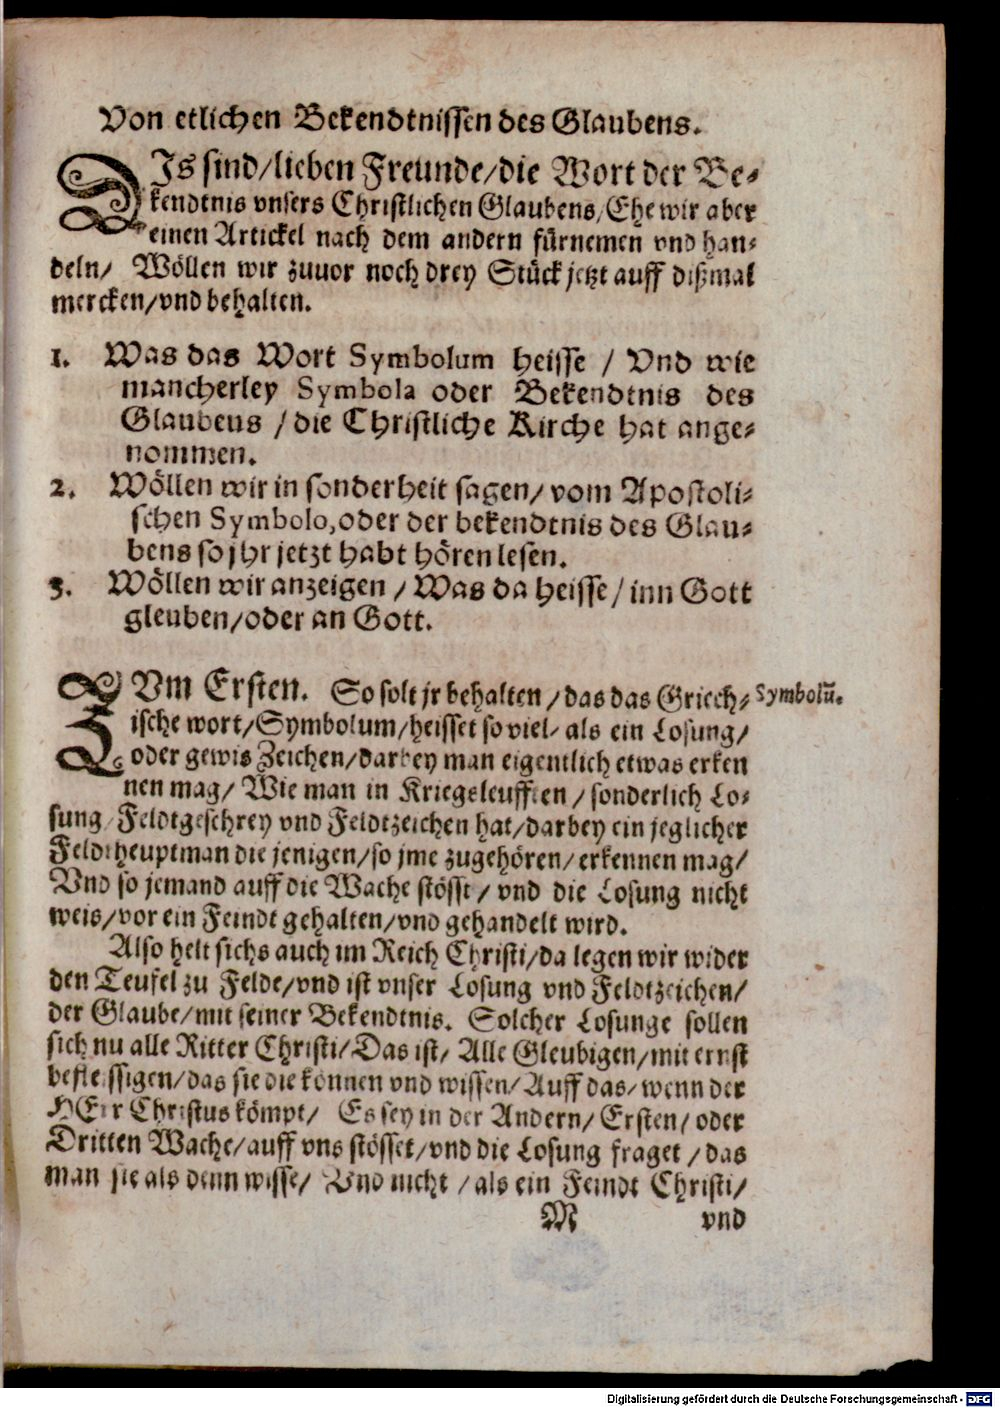 Von etlichen Bekendtnissen des Glaubens.
DIs sind/lieben Freunde/die Wort der Be-
kendtnis vnsers Christlichen Glaubens/Ehe wir aber
einen Artickel nach dem andern fürnemen vnd han-
deln/ Wöllen wir zuuor noch drey Stück jetzt auff dißmal
mercken/vnd behalten.
1. Was das Wort Symbolum heisse / Vnd wie
mancherley Symbola oder Bekendtnis des
Glaubens / die Christliche Kirche hat ange-
nommen.
2. Wöllen wir in sonderheit sagen/ vom Apostoli-
schen Symbolo, oder der bekendtnis des Glau-
bens so jhr jetzt habt hören lesen.
3. Wöllen wir anzeigen / Was da heisse / inn Gott
gleuben/oder an Gott.
ZVm Ersten. So solt jr behalten / das das Griech-
Symbolū.
ische wort/Symbolum/heisset so viel/ als ein Losung/
oder gewis Zeichen/darbey man eigentlich etwas erken
nen mag/ Wie man in Kriegsleufften / sonderlich Lo-
sung/Feldtgeschrey vnd Feldtzeichen hat/darbey ein jeglicher
Feldtheuptman die jenigen/so jme zugehören/erkennen mag/
Vnd so jemand auff die Wache stösst / vnd die Losung nicht
weis/vor ein Feindt gehalten/vnd gehandelt wird.
Also helt sichs auch im Reich Christi/da legen wir wider
den Teufel zu Felde/vnd ist vnser Losung vnd Feldtzeichen/
der Glaube/mit seiner Bekendtnis. Solcher Losunge sollen
sich nu alle Ritter Christi/Das ist/ Alle Gleubigen/mit ernst
befleissigen/das sie die können vnd wissen/Auff das/wenn der
HErr Christus kömpt/ Es sey in der Andern/Ersten/oder
Dritten Wache/auff vns stösset/vnd die Losung fraget / das
man sie als denn wisse/ Vnd nicht / als ein Feindt Christi/
M vnd
Digitalisierung gefördert durch die Deutsche Forschungsgemeinschaft - DFG